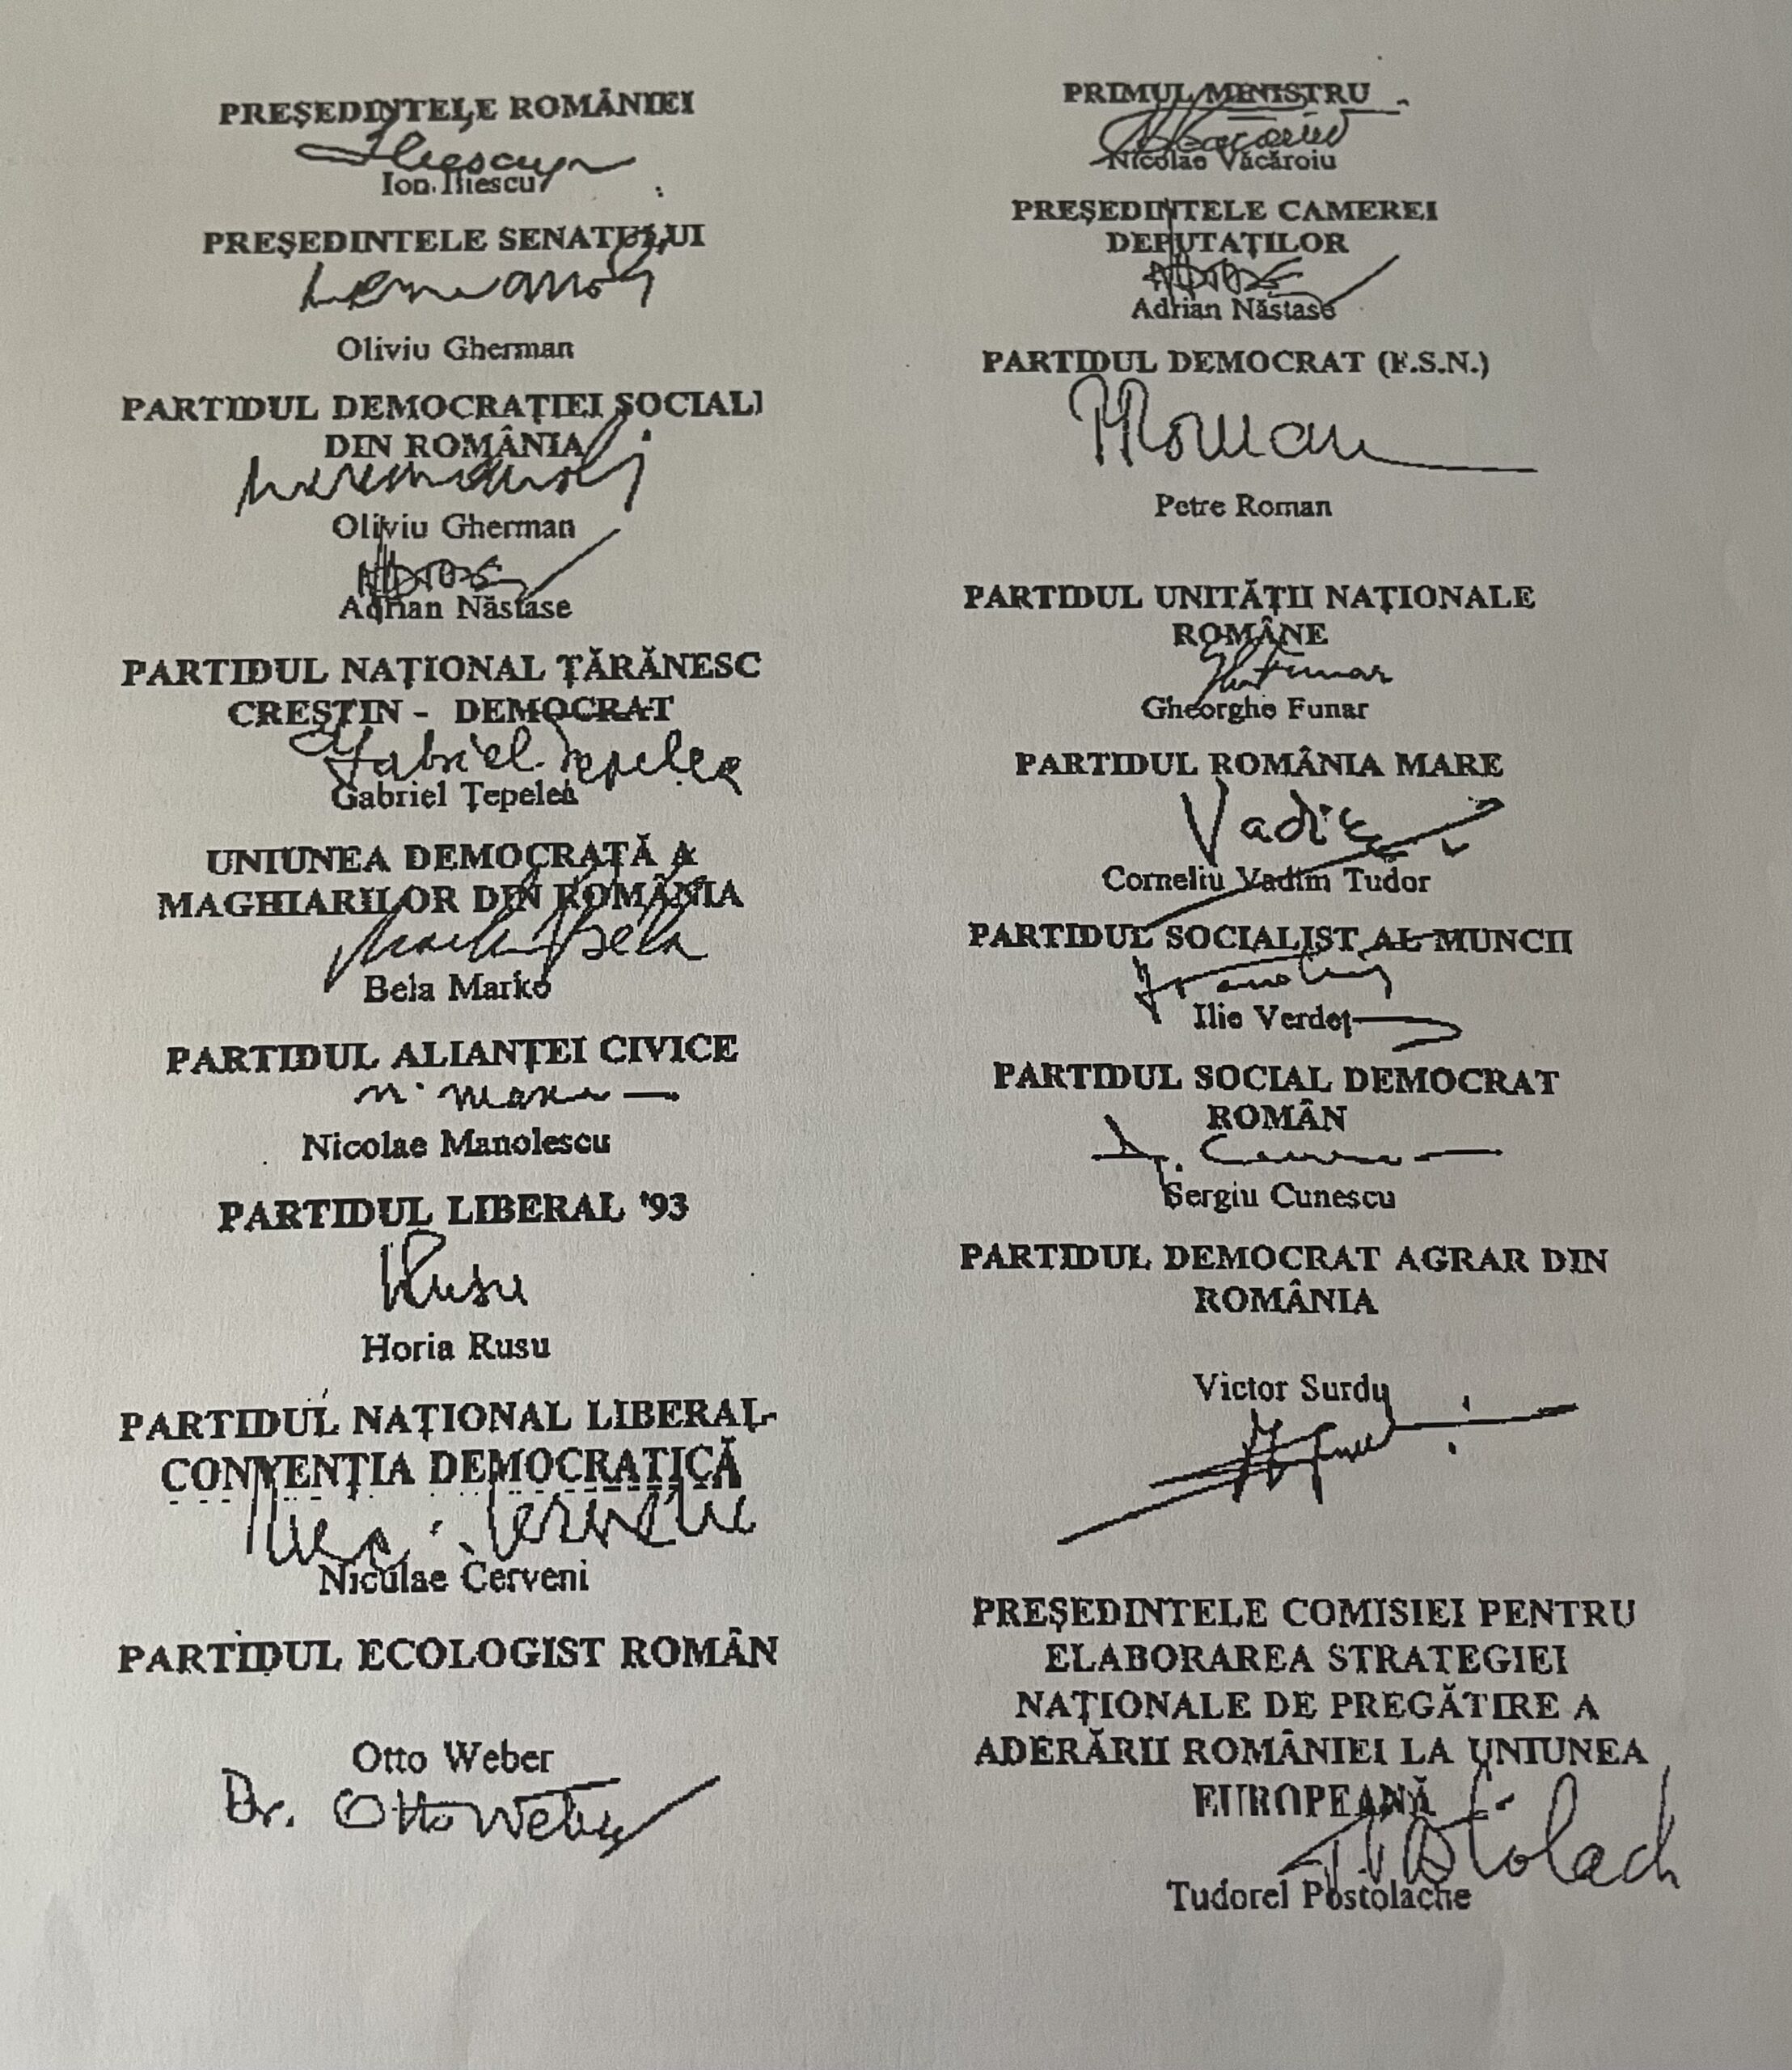 PREȘEDINTELE ROMÂNIEI
Iliescu
Ion Iliescu
PREȘEDINTELE SENATULUI
Oliviu Gherman
PARTIDUL DEMOCRAȚIEI SOCIALI
DIN ROMÂNIA
Oliviu Gherman
Adrian Năstase
PARTIDUL NAȚIONAL ȚĂRĂNESC
CREȘTIN - DEMOCRAT
Gabriel Țepelea
Gabriel Țepelea
UNIUNEA DEMOCRATĂ A
MAGHIARILOR DIN ROMÂNIA
Markó Béla
Bela Marko
PARTIDUL ALIANȚEI CIVICE
Nicolae Manolescu
PARTIDUL LIBERAL '93
HRusu
Horia Rusu
PARTIDUL NAȚIONAL LIBERAL-
CONVENȚIA DEMOCRATICĂ
Niculae Cerveni
PARTIDUL ECOLOGIST ROMÂN
Otto Weber
Dr. Otto Weber
PRIMUL MINISTRU
Nicolae Văcăroiu
PREȘEDINTELE CAMEREI
DEPUTAȚILOR
Adrian Năstase
PARTIDUL DEMOCRAT (F.S.N.)
PRoman
Petre Roman
PARTIDUL UNITĂȚII NAȚIONALE
ROMÂNE
Gh Funar
Gheorghe Funar
PARTIDUL ROMÂNIA MARE
Corneliu Vadim Tudor
PARTIDUL SOCIALIST AL MUNCII
Ilie Verdeț
PARTIDUL SOCIAL DEMOCRAT
ROMÂN
Sergiu Cunescu
PARTIDUL DEMOCRAT AGRAR DIN
ROMÂNIA
Victor Surdu
PREȘEDINTELE COMISIEI PENTRU
ELABORAREA STRATEGIEI
NAȚIONALE DE PREGĂTIRE A
ADERĂRII ROMÂNIEI LA UNIUNEA
EUROPEANĂ
Tudorel Postolache